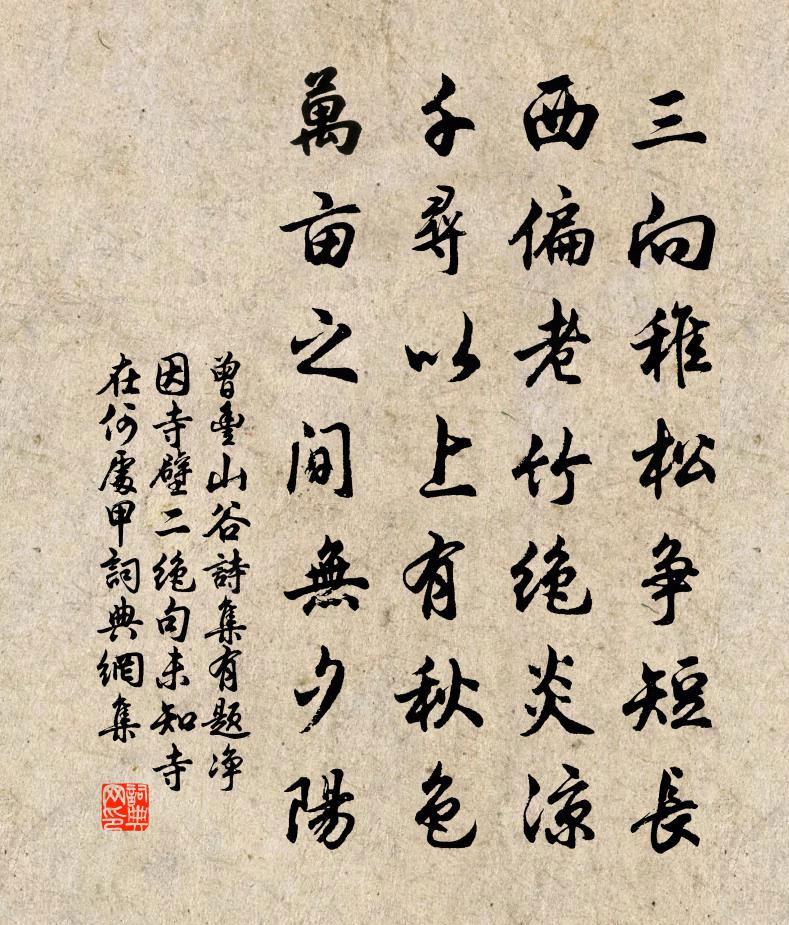 三向稚松争短長
西偏老竹绝炎凉
千尋以上有秋色
萬亩之间無夕陽
曾豊山谷詩集有题净
因寺壁二绝句未知寺
在何處甲詞典網集
詞典
网印